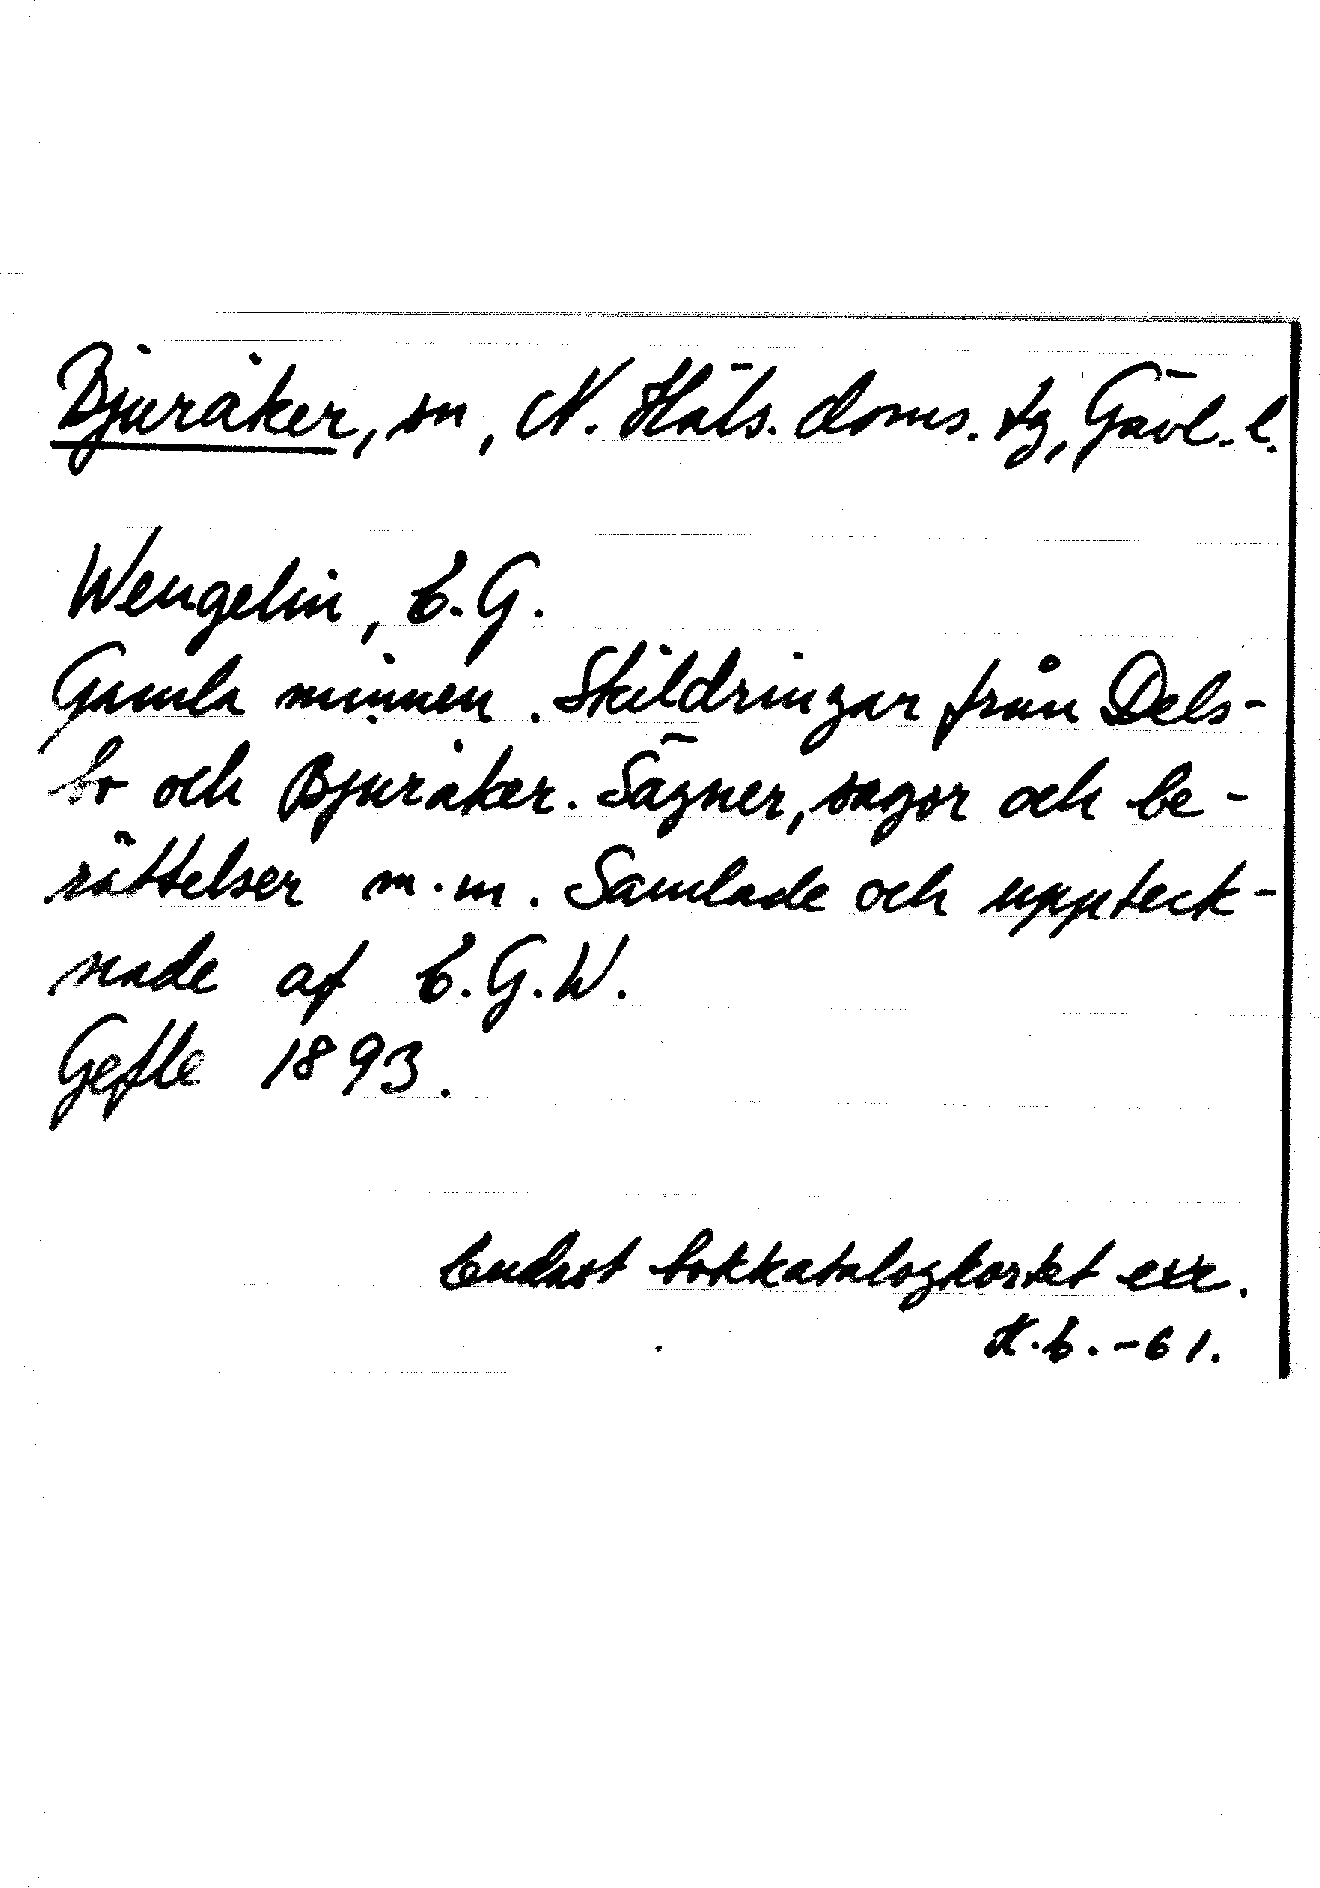 Bjuråker, sn, N. Häls. doms. tg, Gävl. l.
Wengelin, E. G.
Gamla minnen. Skildringar från Dels-
bo och Bjuråker. Sägner, sagor och be-
rättelser m.m. Samlade och uppteck-
nade af E.G.W.
Gefle 1893.
Endast bokkatalogkortet exc.
K.E. -61.